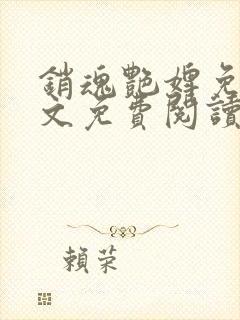 銷魂艷婢免
文免費閱讀
賴荣